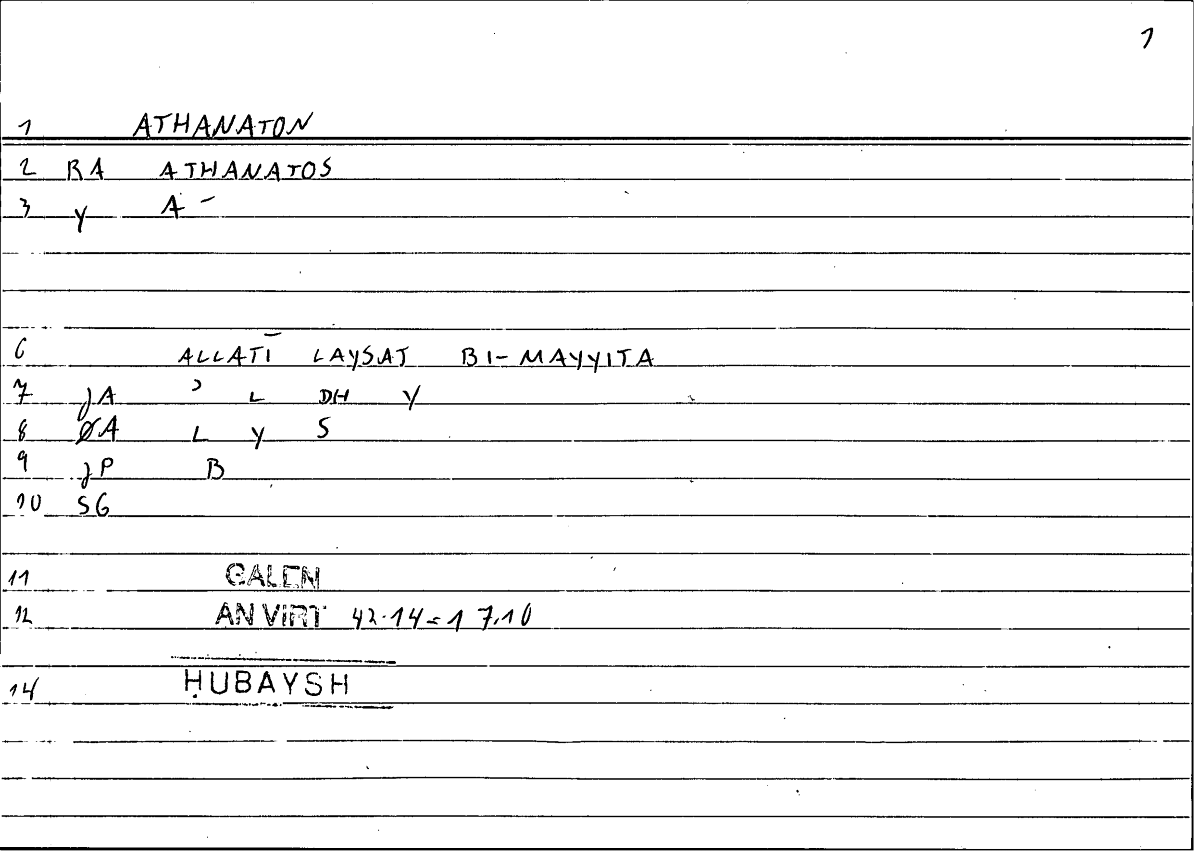 1
1 ATHANATON
2 RA ATHANATOS
3 y A -
6 ALLATĪ LAYSAT BI-MAYYITA
7 JA ʾ L DH Y
8 ØA L Y S
9 JP B
10 SG
11 GALEN
12 AN VIRT 42.14=1 7.10
14 ḤUBAYSH